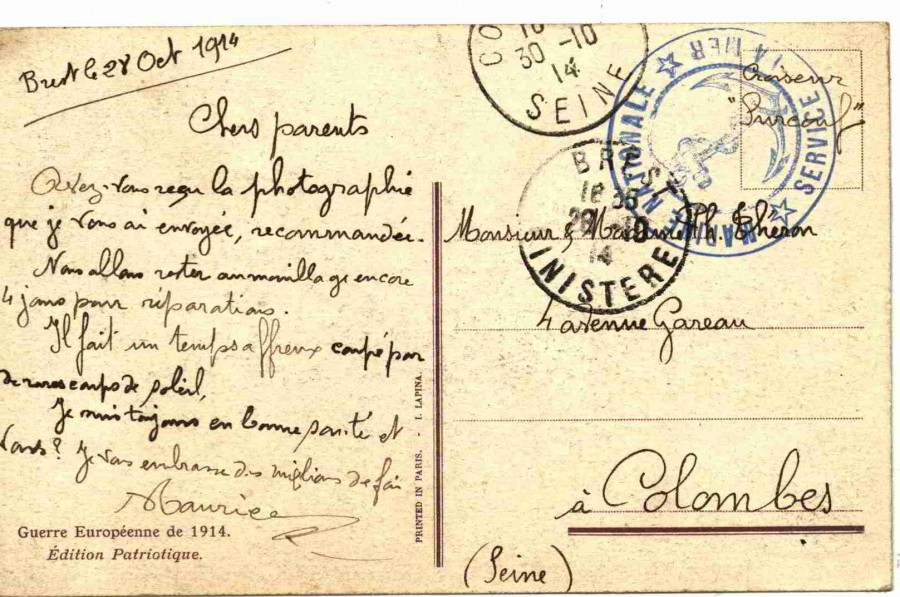 Brest le 28 Oct 1914
Chers parents
Avez-vous reçu la photographie
que je vous ai envoyée, recommandée.
Nous allons rester au mouillage encore
4 jours pour réparations.
Il fait un temps affreux coupé par
de rares coups de soleil,
Je suis toujours en bonne santé et
vous? Je vous embrasse des millions de fois
Maurice
Guerre Européenne de 1914.
Édition Patriotique.
PRINTED IN PARIS. - I. LAPINA.
CO
30 -10
14
SEINE
BREST
29 10
14
MINISTERE
MARINE NATIONALE
SERVICE À LA MER
Croiseur
"Surcouf"
Monsieur & Madame Ph Théron
4 avenue Gareau
à Colombes
(Seine)